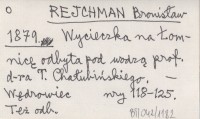 O REJCHMAN Bronisław
1879. Wycieczka na Łom-
nicę odbyta pod wodzą prof.
d-ra T. Chałubińskiego. —
Wędrowiec nry 118-125.
Też odb.